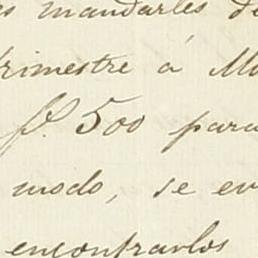 mandarles de
trimestre á Mo
f. 500 para
modo, se en
encontrarlos